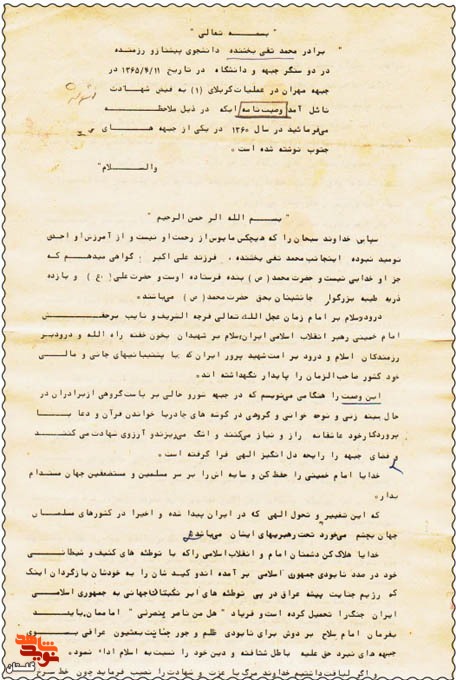 " بسمه تعالی "
" برادر محمد تقی بخشنده دانشجوی پیشتاز و رزمنده
در دو سنگر جبهه و دانشگاه در تاریخ ۱۳۶۵/۴/۱۱ در
جبهه مهران در عملیات کربلای (۱) به فیض شهادت
نائل آمد وصیت نامه ایکه در ذیل ملاحظه
می‌فرمائید در سال ۱۳۶۰ در یکی از جبهه های
جنوب نوشته شده است ۰
والسلام "
" بسم الله الرحمن الرحیم "
سپاس خداوند سبحان را که هیچکس مایوس از رحمت او نیست و از آمرزش او احدی
نومید نبوده اینجانب محمد تقی بخشنده ، فرزند علی اکبر گواهی میدهم که
جز او خدایی نیست و حضرت محمد (ص) بنده فرستاده اوست و حضرت علی (ع) و یازده
ذریه طیبه بزرگوار جانشینان بحق حضرت محمد (ص) می‌باشند ۰
درود و سلام بر امام زمان عجل الله تعالی فرجه الشریف و نایب برحقش
امام خمینی رهبر انقلاب اسلامی ایران، سلام بر شهیدان بخون خفته راه الله و درود بر
رزمندگان اسلام و درود بر امت شهید پرور ایران که با پشتیبانیهای جانی و مالی
خود کشور صاحب الزمان را پایدار نگهداشته اند ۰
این وصیت را هنگامی می‌نویسم که در جبهه شور و حالی بر پاست گروهی از برادران در
حال سینه زنی و نوحه خوانی و گروهی در گوشه های چادر با خواندن قرآن و دعا با
پروردگار خود عاشقانه راز و نیاز می‌کنند و اشک می‌ریزند و آرزوی شهادت می کنند
و فضای جبهه را رایحه دل انگیز الهی فرا گرفته است ۰
خدایا امام خمینی را حفظ کن و سایه اش را بر سر مسلمین و مستضعفین جهان مستدام
بدار ۰
که این تغییر و تحول الهی که در ایران پیدا شده و اخیرا در کشورهای مسلمان
جهان بچشم می‌خورد تحت رهبریهای ایشان می‌باشد
خدایا هلاک کن دشمنان امام و انقلاب اسلامی را که با توطئه های کثیف و شیطانی
خود در صدد نابودی جمهوری اسلامی بر آمده اند و کید شان را به خودشان بازگردان اینک
که رژیم جنایت پیشه عراق در پی توطئه های ابر جهانی به جمهوری اسلامی
ایران جنگ را تحمیل کرده است و فریاد " هل من ناصر ینصرنی " اماممان باید
بفرمان امام سلاح بر دوش برای نابودی ظلم و جور جنایت بعثیون عراقی بسوی
جبهه های نبرد حق علیه باطل شتافته و دین خود را نسبت به اسلام ادا نمود
و اگر لیاقت داشتیم خداوند مرگ با عزت و شهادت را نصیب فرماید چون خط سرخ
نوید شاهد
گلستان